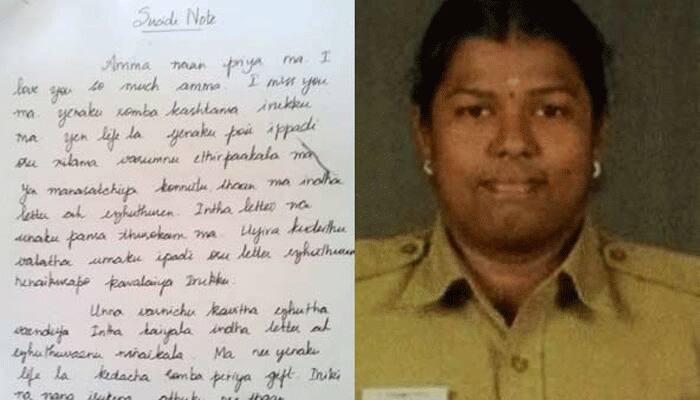 Suside Note
Amma naan priya ma. I
love you so much amma. I miss you
ma. yenaku romba kashtama irukku
ma yen life la yenaku poi ippadi
oru nilama varumnu ethirpaakala ma
Yen manasatchiya konnutu thaan ma indha
letter ah ezhuthuren. Intha letter na
unaku panra thurokam ma. Uyira kuduthu
valatha unaku ipadi oru letter ezhuthuvanu
ninaikurapo kavalaiya Irukku.
Unna varnichu kavitha ezhutha
vaendiya Intha kaiyala indha letter ah
ezhuthuvaenu ninaikala. Ma nee yenaku
life la kedacha romba periya gift. Iniki
na nana